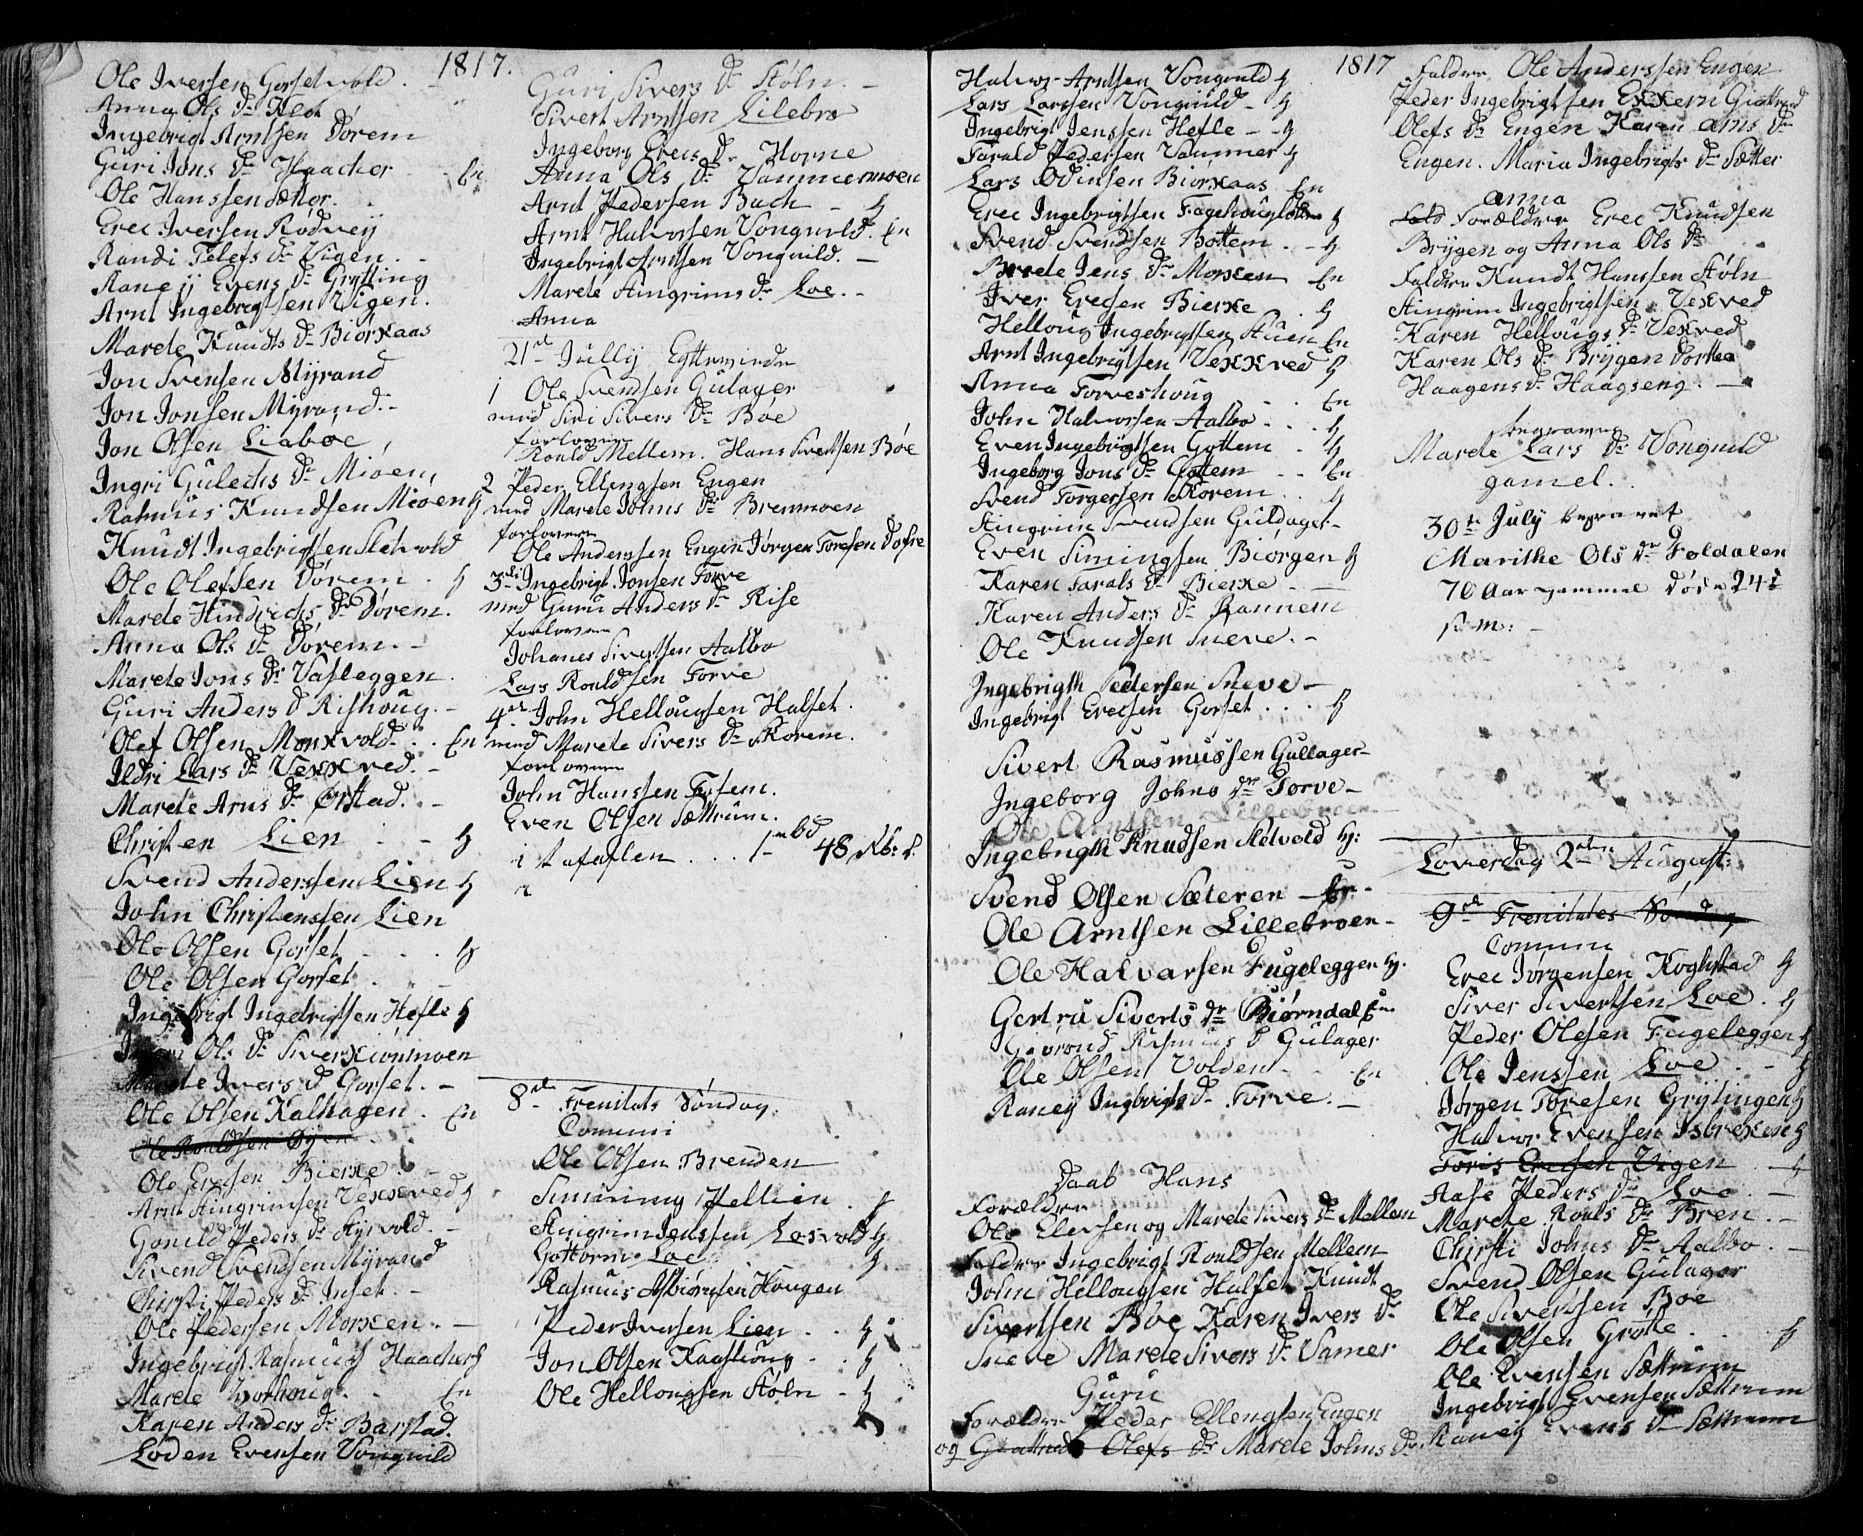 1817.
Ole Iversen Gorsetvold
Anna Ols Dr Klet
Ingebrigt Arntsen Dørem
Guri Jons Dr Haacher En
Ole Hanssen Sætter.
Erec Iversen Rødveÿ
Randi Telefs Dr Vigen.
Raneÿ Evens Dr Grÿtting
Arnt Ingebrigtsen Vigen.
Marete Knudts Dr Biørkaas
Jon Svensen Mÿrand
Jon Jonsen Mÿrand.
Jon Olsen Liabøe
Ingri Gulechs Dr Mioen
Rasmus Knudsen Mioen H
Knudt Ingebrigtsen Sletvold
Ole Olefsen Dørem H
Marete Hindrichs Dr Dørem.
Anna Ols Dr Dørem.
Marete Jons Dr Vasleggen
Guri Anders D Rishoug.
Olef Olsen Monkvold. En
Ildri Lars Dr Vekkved.
Marete Arns Dr Ørstad.
Christen Lien H
Svend Andersen Lien H
John Christenssen Lien
Ole Olsen Gorset H
Ole Olsen Gorset
Ingebrigt Ingebrigtsen Hefle H
Ols Dr
Marete Ivers D Gorset.
Ole Olsen Kalhagen En
Ole Rouldsen Øÿen
Ole Erecsen Bierke
Arnt Stingrimsen Vekkved H
Gonild Peders Dr Stÿrvold.
Svend Svendsen Mÿrand
Chirsti Peders Dr Inset.
Ole Pedersen Morken.
Ingebrigt Rasmuss Haacher H
Marete En
Karen Anders Dr Barstad.
Loden Evensen Vongvild
Guri Sivers Dr Støln.
Sivert Arntsen Lilebro
Ingeborg Erecs Dr Horne
Anna Ols Dr Vammermoen
Arnt Pedersen Bach H
Arnt Halvorsen Vongvild. En
Ingebrigt Arntsen Vongvild.
Marete Stingrims Dr Loe.
Anna
21de Jullÿ Egtevviede
1 Ole Svendsen Gulager
med Siri Sivers Dr Boe
forlovere
Rould Mellem. Hans Sivertsen Bøe
2 Peder Ellengsen Engen
med Marete Johns Dr Bremmoen
forlovere
Ole Anderssen Engen Jørgen Toresen Dofre
3die Ingebrigt Jonsen Torve
med Guru Anders Dr Rise
forlovere
Johanes Sivertsen Aalbo
Lars Rouldsen Torve
4de John Hellougsen Halset.
med Marete Sivers Dr Skorem.
forlovere
John Hanssen Fosem.
Even Olsen Sættrum.
i tafaflen 1 bd 48
8de Trenitats Søndag.
Comuni
Ole Olsen Brenden
Simming Pellien H
Stingrim Jenssen Losvold H
Gottorm Loe H
Rasmus Asbiørnsen Hougen
Peder Iversen Lien H
Jon Olsen Kaashoug H
Ole Hellougsen Støln H
1817
Halvor Arntsen Vongvild H
Lars Larssen Vongvild H
Ingebrigt Jenssen Hefle H
Tarald Pedersen Vammer H
Lars Odinsen Biørkaas En
Erec Ingebrigtsen H
Svend Svendsen Bottem H
Brede Jens Dr Morken En
Iver Erecsen Bierke H
Helloug Ingebrigtsen Stuen En
Arnt Ingebrigtsen Vekkved H
Anna Torveshoug En
John Halvorsen Aalbo H
Even Ingebrigtsen Gottem H
Ingeborg Jons Dr Gottem En
Svend Torgersen Skorem H
Stingrim Svendsen Guldager
Even Simingsen Biørgen H
Karen Taralds Dr Bierke
Karen Anders Dr Rannem
Ole Knudsen Sneve.
Ingebrigth Pedersen Sneve
Ingebrigt Erecsen Gorset H
Sivert Rasmussen Gullager
Ingeborg Johns Dr Torve
Ole Arntsen Lillebroen
Ingebrigth Knudsen Sletvold H:
Svend Olsen Sæteren
Ole Arntsen Lillebroen
Ole Halvarsen Fugeleggen H.
Gertru Siverts Dr Biørndal En
Rasmus D Gulager
Ole Olsen Volden En
Raneÿ Ingbrigts Dr Torve.
Daab Hans
Forældre
Ole Elevsen og Marete Sivers Dr Mellem
Faldre Ingebrigt Rouldsen Mellem
John Hellougsen Halset Knudt
Sivertsen Bøe Karen Ivers Dr
Sneve Marete Sivers Dr Vamer
Guru
Forældre Peder Ellengsen Engen
og Olefs Dr Marete Johns Dr
Faldre Ole Anderssen Engen
Peder Ingebrigtsen Ekkern
Olefs Dr Engen Karen Arns Dr
Engen. Maria Ingebrigts Dr Sætter
Anna
Forældre Erec Knudsen
Brÿgen og Anna Ols Dr
Faldre Knudt Hanssen Støln
Stingrim Ingebrigtsen Vekved
Karen Hellougs Dr Vekved
Karen Ols Dr Brÿgen Dorttea
Haagens Dr Haagseng
begraven
Marete Lars Dr Vongvild
gamel.
30te July begravet
Marithe Ols Dr Foldalen
70 Aar gammel døde 24de
s. m:
Løverdag 2den August:
9de Trenitates Søndag
Comuni
Erec Jørgensen Roghstad H
Siver Sivertsen Loe. H
Peder Olesen Fugeleggen H
Ole Jenssen Loe H
Jørgen Toresen Grÿtingen H
Halvor Evensen Isbrekken H
Toris Erecsen Vigen H
Aase Peders Dr Loe
Marete Roals Dr Bren
Chirsti Johns Dr Aalbo.
Svend Olsen Gulager
Ole Sivertsen Boe
Ole Olsen Grøte H
Ole Evensen Sættrum
Ingebrigt Evensen Sættrum
Raneÿ Evens Dr Sættrum